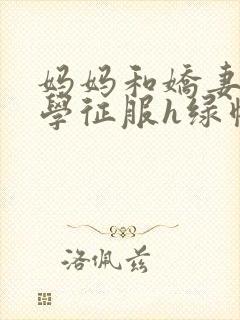 妈妈和嬌妻
學征服h绿
洛佩兹